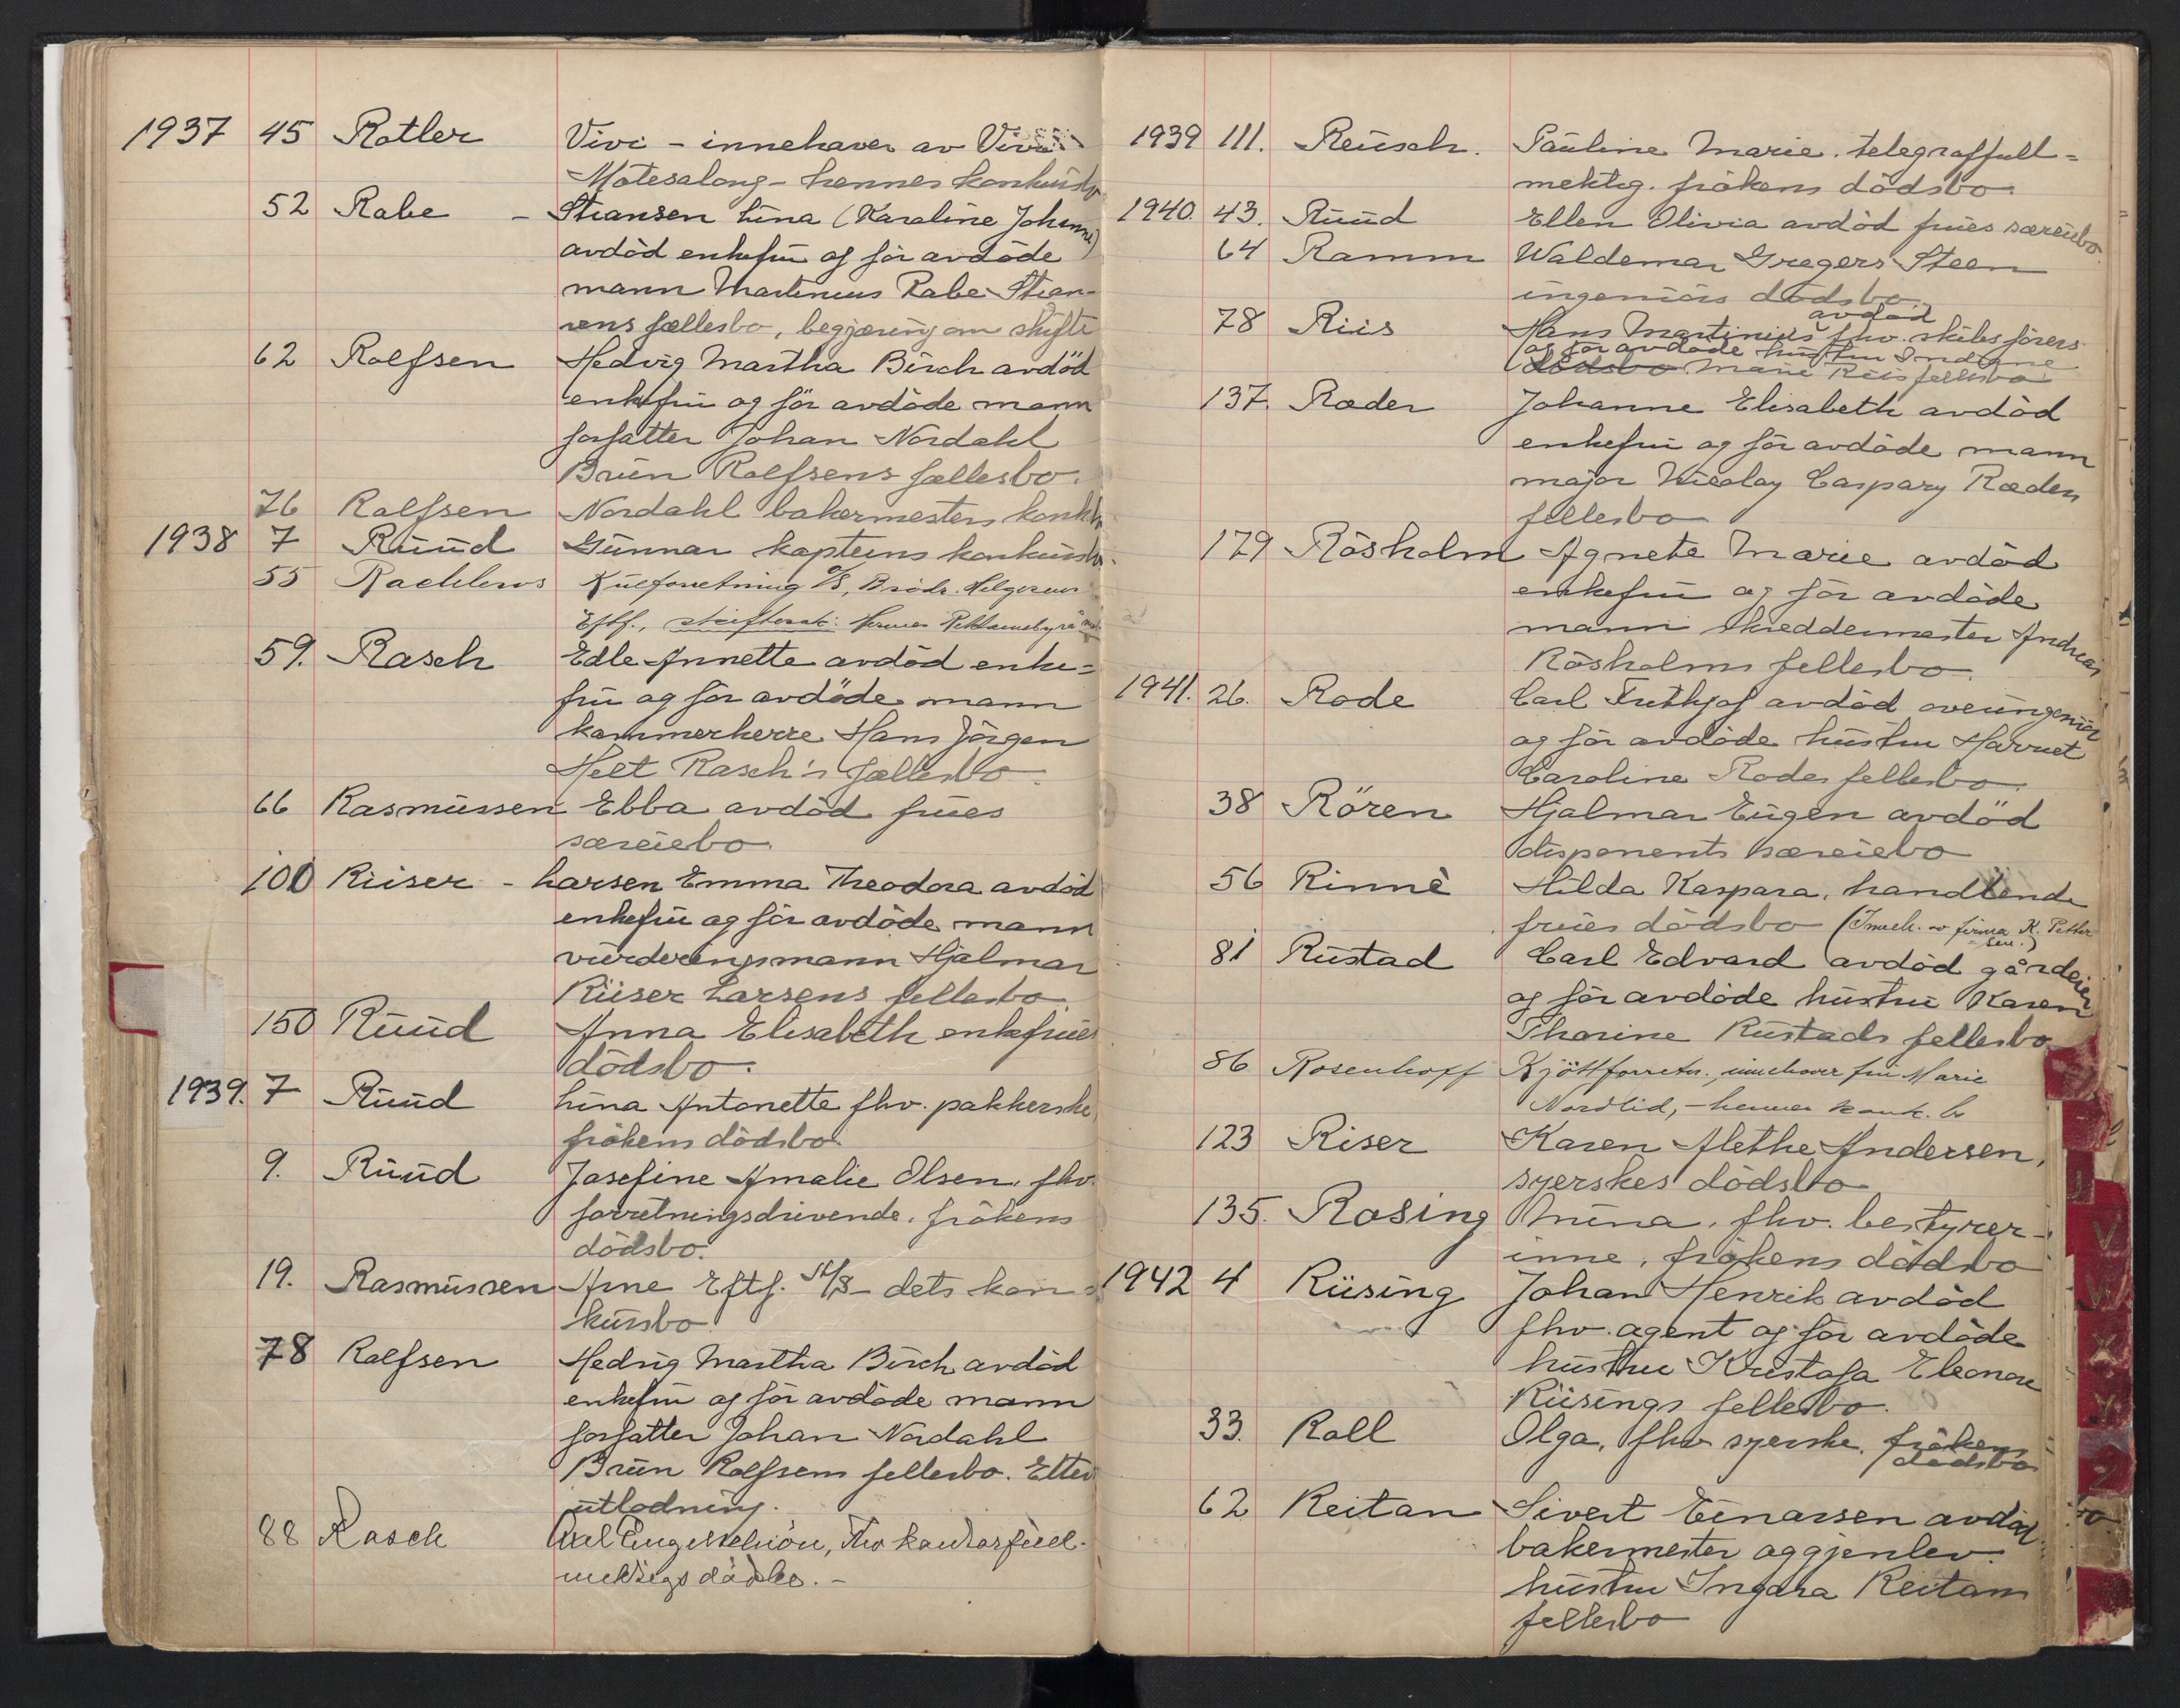 1937 45 Rotler Vivi - innehaver av Vivi
Motesalong - hennes konkursbo
52 Rabe - Stiansen Lina (Karaline Johanne)
avdöd enkefru og för avdöde
mann Martinius Rabe-Stian-
sens fællesbo, begjæring om skifte
62 Rolfsen Hedvig Martha Birch avdöd
enkefru og för avdöde mann
forfatter Johan Nordahl
Brun Rolfsens fællesbo.
76 Rolfsen Nordahl bakermesters konkbo
1938 7 Ruud Gunnar kapteins konkursbo.
55 Kulforretning A/S, Brödr. Helgesens
Eftf.,
59. Rasch Edle Annette avdöd enke=
fru og för avdöde mann
kammerherre Hans Jörgen
Helt Rasch's fællesbo.
66 Rasmussen Ebba avdöd frues
særeiebo.
100 Riiser - Larsen Emma Theodora avdöd
enkefru og för avdöde mann
vurderingsmann Hjalmar
Riiser Larsens fellesbo.
150 Ruud Anna Elisabeth enkefrues
dödsbo.
1939. 7 Ruud Lina Antonette fhv. pakkerske,
frökens dödsbo
9. Ruud Josefine Amalie Olsen, fhv.
forretningsdrivende, frökens
dödsbo.
19. Rasmussen Arne Eftf. A/S - dets kon=
kursbo
78 Rolfsen Hedvig Martha Birch avdöd
enkefru og för avdöde mann
forfatter Johan Nordahl
Brun Rolfsens fellesbo. Etter
utlodning.
88 Rasch Axel Engelschiön, fhv kontorfull-
mektigs dödsbo. -
1939 111. Reusch. Pauline Marie, telegraffull=
mektig. frökens dödsbo
1940. 43. Ruud Ellen Olivia avdöd frues særeiebo.
64 Ramm Waldemar Gregers Steen
ingeniörs dödsbo.
avdöd
78 Riis Hans Martinius fhv. skibsförers
og för avdöde hustru Indiane
dödsbo Marie Riis fellesbo
137. Ræder Johanne Elisabeth avdöd
enkefru og för avdöde mann
major Nicolay Caspary Ræders
fellesbo
179 Rösholm Agnete Marie avdöd
enkefru og för avdöde
mann skreddermester Andreas
Rösholms fellesbo.
1941. 26. Rode Carl Frithjof avdöd overingeniör
og för avdöde hustru Harriet
Caroline Rodes fellesbo.
38 Rören Hjalmar Eugen avdöd
disponents særeiebo
56 Rinnè Hilda Kaspara, handlende
frues dödsbo (Inneh. av firma K. Petter
sen.)
81 Rustad Carl Edvard avdöd gårdeier
og för avdöde hustru Karen
Thorine Rustads fellesbo
86 Rosenhoff Kjöttforretn., innehaver fru Marie
Nordlid, - hennes konk. bo
123 Riser Karen Alethe Andersen,
syerskes dödsbo
135. Rosing Mina, fhv. bestyrer-
inne, frökens dödsbo
1942 4 Riising Johan Henrik avdöd
fhv. agent og för avdöde
hustru Kristofa Eleonore
Riisings fellesbo.
33. Roll Olga, fhv syerske, frökens
dödsbo
62 Reitan Sivert Einarsen avdöd
bakermester og gjenlev.
hustru Ingara Reitans
fellesbo
V
W
X
Y